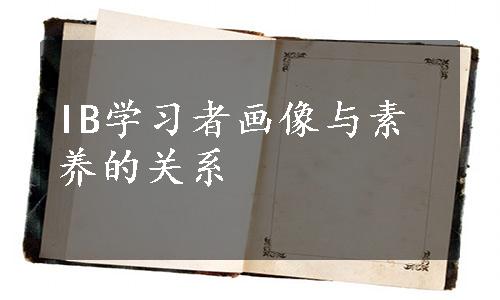 IB学习者画像与素
养的关系